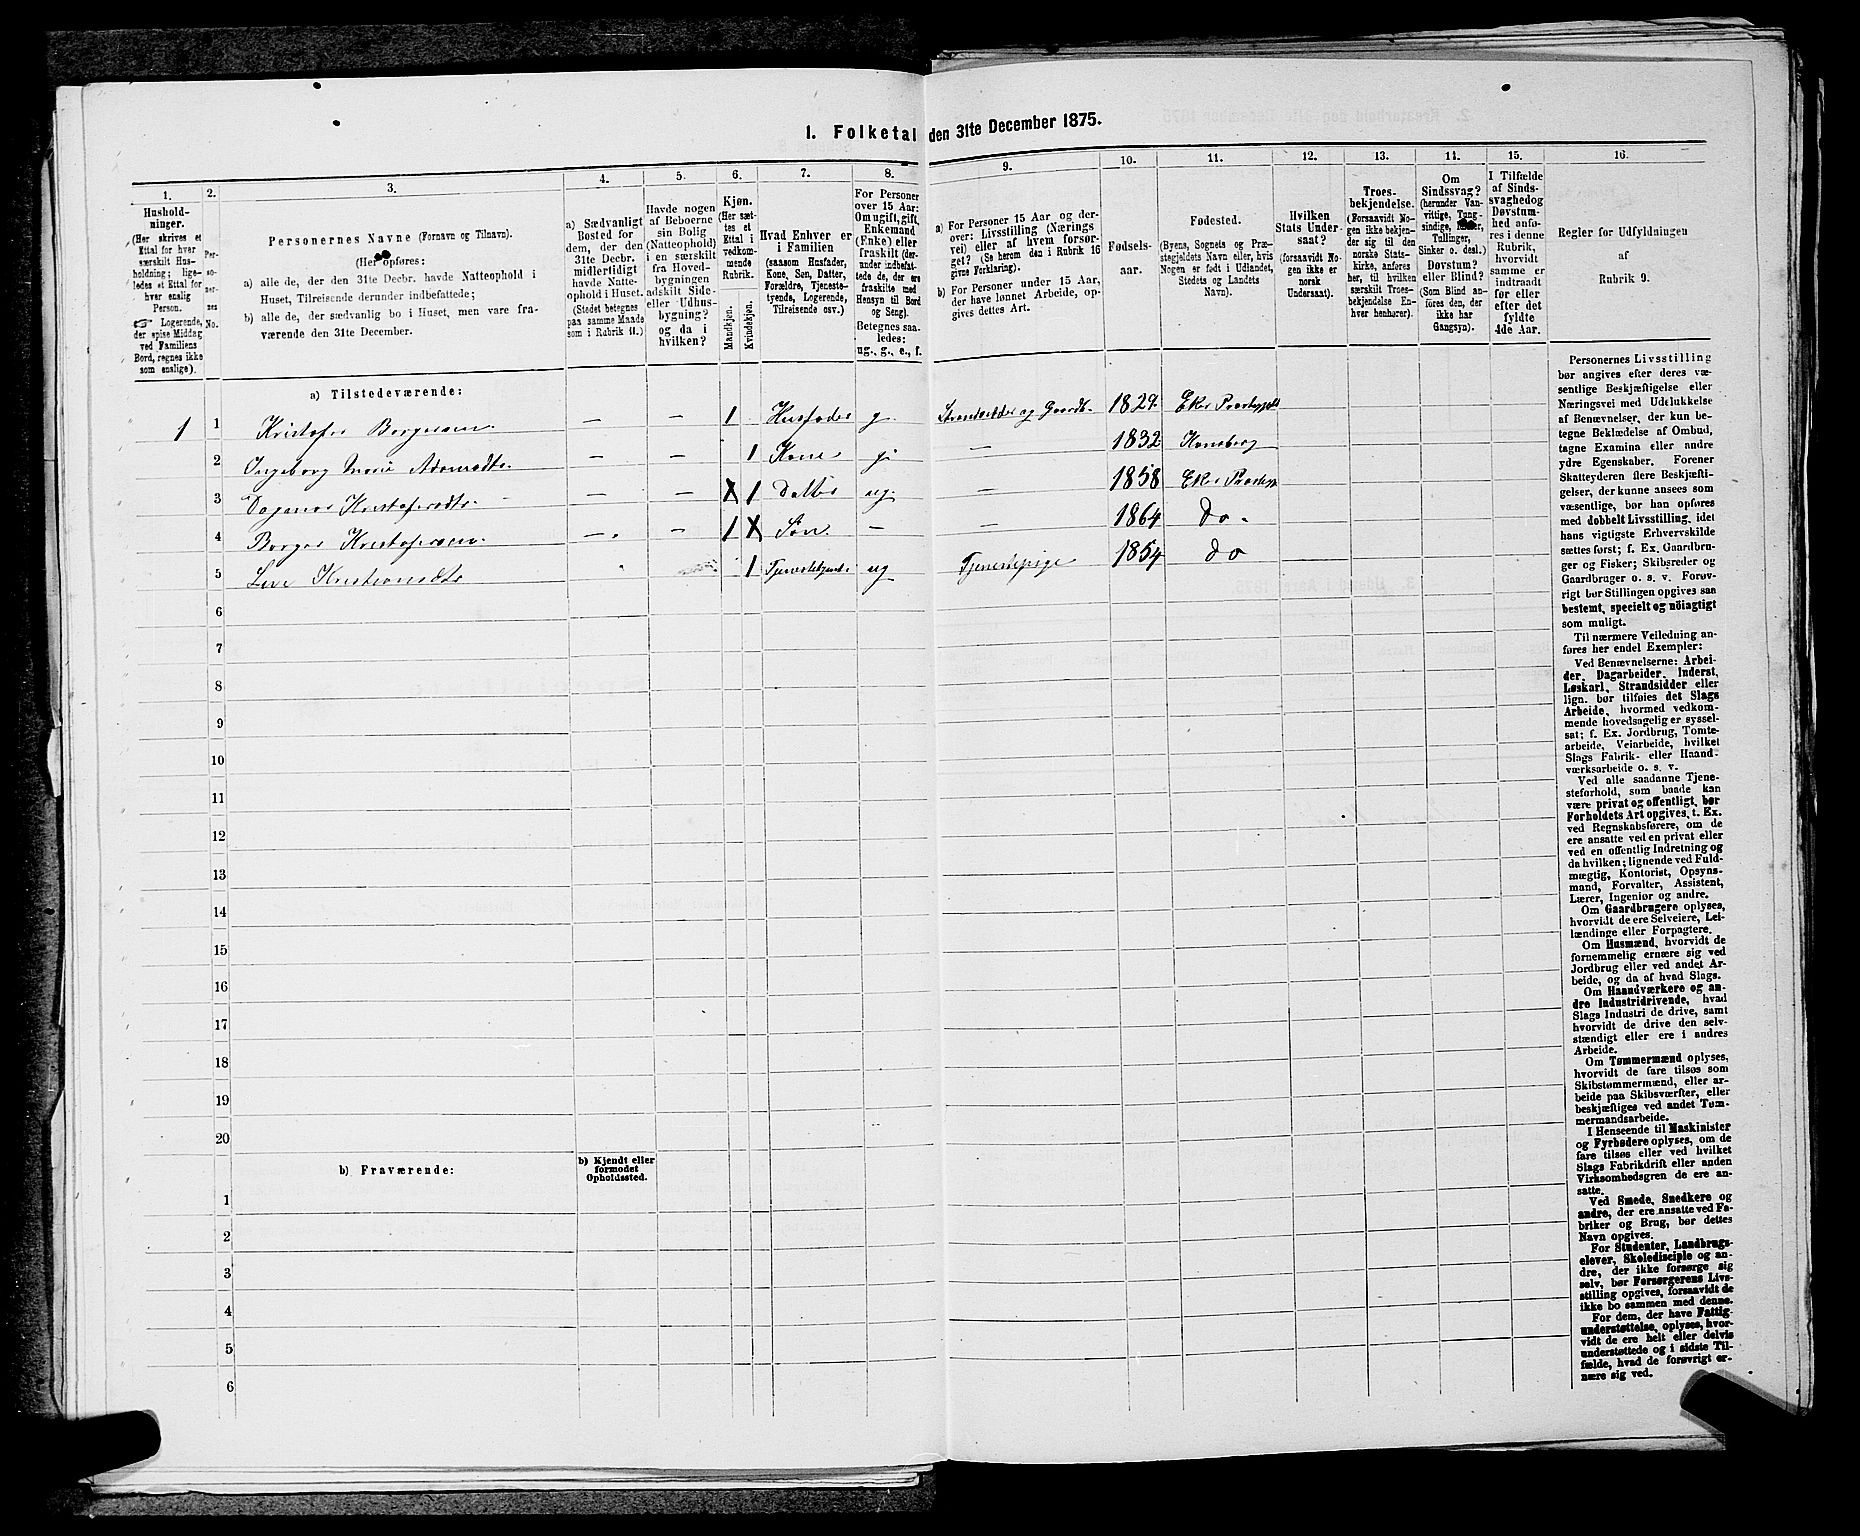 1. Folketal den 31te December 1875.
1.
Hushold-
ninger.
(Her skrives et
Ettal for hver
særskilt Hus-
holdning; lige-
ledes et Ettal for
hver enslig
Person.
☞ Logerende,
der spise Middag
ved Familiens
Bord, regnes ikke
som enslige).
2.
Per-
so-
ner-
nes
No.
3.
Personernes Navne (Fornavn og Tilnavn).
(Her opføres:
a) alle de, der den 31te Decbr. havde Natteophold i
Huset, Tilreisende derunder indbefattede;
b) alle de, der sædvanlig bo i Huset, men vare fra-
værende den 31te December.
4.
a) Sædvanligt
Bosted for
dem, der den
31te Decbr.
midlertidigt
havde Natte-
ophold i Huset.
(Stedet betegnes
paa samme Maade
som i Rubrik 11.)
5.
Havde nogen
af Beboerne
sin Bolig
(Natteophold)
i en særskilt
fra Hoved-
bygningen
adskilt Side-
eller Udhus-
bygning?
og da i
hvilken?
6.
Kjøn.
(Her sæt-
tes et
Ettal i
vedkom-
mende
Rubrik.
Mandkjøn.
Kvindekjøn.
7.
Hvad Enhver er
i Familien
(saasom Husfader,
Kone, Søn, Datter,
Forældre, Tjeneste-
tyende, Logerende,
Tilreisende osv.)
8.
For Personer
over 15 Aar:
Om ugift, gift,
Enkemand
(Enke) eller
fraskilt (der-
under indbefat-
tede de, der ere
fraskilte med
Hensyn til Bord
og Seng).
Betegnes saa-
ledes:
ug., g., e., f.
9.
a) For Personer 15 Aar og der-
over: Livsstilling (Nærings
vei) eller af hvem forsør-
get? (Se herom den i Rubrik 16
givne Forklaring).
b) For Personer under 15 Aar,
der have lønnet Arbeide, op-
gives dettes Art.
10.
Fødsels-
aar.
11.
Fødested.
(Byens, Sognets og Præ-
stegjeldets Navn eller, hvis
Nogen er født i Udlandet,
Stedets og Landets
Navn).
12.
Hvilken
Stats Under-
saat?
(forsaavidt No-
gen ikke er
norsk
Undersaat).
13.
Troes-
bekjendelse.
(Forsaavidt No-
gen ikke bekjen-
der sig til den
norske Stats-
kirke, anføres
her, til hvilken
særskilt Troes-
bekjendelse En-
hver henhører).
14.
Om
Sindssvag?
(herunder Van-
vittige, Tung-
sindige,
Tullinger,
Sinker o. desl.)
Døvstum?
eller Blind?
(Som Blind an-
føres den, der
ikke har
Gangsyn).
15.
I Tilfælde
af Sinds-
svaghedog
Døvstum-
hed anfø-
res i denne
Rubrik,
hvorvidt
samme er
indtraadt
før eller
efter det
fyldte
4de Aar.
16.
Regler for Udfyldningen
af
Rubrik 9.
a) Tilstedeværende:
1 1 Kristofer Borgersen — — 1 Husfader g Strandsidder og Gaardb. 1829. Eker Præstegjeld
2 Ingeborg Marie Adamsdtr. — — 1 Kone g. — 1832 Kongsberg
3 Dagmar Kristofersdtr. — — X 1 Datter ug. — 1858 Eker Præstegj.
4 Borger Kristofersen. — — 1 X Søn. — — 1864 Do.
5 Kristiansdtr 1 Tjenestetyende ug Tjenestepige 1854 do
6
7
8
9
10
11
12
13
14
15
16
17
18
19
20
b) Fraværende:
b) Kjendt eller
formodet
Opholdssted.
1
2
3
4
5
6
Personernes Livsstilling
bør angives efter deres væ-
sentlige Beskjæftigelse eller
Næringsvei med Udelukkelse
af Benævnelser, der kun be-
tegne Beklædelse af Ombud,
tagne Examina eller andre
ydre Egenskaber. Forener
Skatteyderen flere Beskjæfti-
gelser, der kunne ansees som
væsentlige, bør han opføres
med dobbelt Livsstilling, idet
hans vigtigste Erhvervskilde
sættes først; f. Ex. Gaardbru-
ger og Fisker; Skibsreder og
Gaardbruger o. s. v. Forøv-
rigt bør Stillingen opgives saa
bestemt, specielt og nöiagtigt
som muligt.
Til nærmere Veiledning an-
føres her endel Exempler:
Ved Benævnelserne: Arbei-
der, Dagarbeider, Inderst,
Løskarl, Strandsidder eller
lign. bør tilføies det Slags
Arbeide, hvormed vedkom-
mende hovedsagelig er syssel-
sat; f. Ex. Jordbrug, Tomte-
arbeide, Veiarbeide, hvilket
Slags Fabrik- eller Haand-
værksarbeide o. s. v.
Ved alle saadanne Tjene-
steforhold, som baade kan
være privat og offentligt, bør
Forholdets Art opgives, t. Ex.
ved Regnskabsførere, om de
ere ansatte ved en privat eller
ved en offentlig Indretning og
da hvilken; lignende ved Fuld-
mægtig, Kontorist, Opsyns-
mand, Forvalter, Assistent,
Lærer, Ingeniør og andre.
Om Gaardbrugere oplyses,
hvorvidt de ere Selveiere, Lei-
lændinge eller Forpagtere.
Om Husmænd, hvorvidt de
fornemmelig ernære sig ved
Jordbrug eller ved andet Ar-
beide, og da af hvad Slags.
Om Haandværkere og an-
dre Industridrivende, hvad
Slags Industri de drive, samt
hvorvidt de drive den selv-
stændigt eller ere i andres
Arbeide.
Om Tømmermænd oplyses,
hvorvidt de fare tilsøs som
Skibstømmermænd, eller ar-
beide paa Skibsværfter, eller
beskjæftiges ved andet Tøm-
mermandsarbeide.
I Henseende til Maskinister
og Fyrbødere oplyses, om de
fare tilsøs eller ved hvilket
Slags Fabrikdrift eller anden
Virksomhedsgren de ere an-
satte.
Ved Smede, Snedkere og
andre, der ere ansatte ved Fa-
briker og Brug, bør dettes
Navn opgives.
For Studenter, Landbrugs-
elever, Skoledisciple og an-
dre, der ikke forsørge sig
selv, bør Forsørgerens Livs-
stilling opgives, forsaavidt de
ikke bo sammen med denne.
For dem, der have Fattig-
understøttelse, oplyses, hvor-
vidt de ere helt eller delvis
understøttede og i sidste Til-
fælde, hvad de forøvrigt er-
nære sig ved.